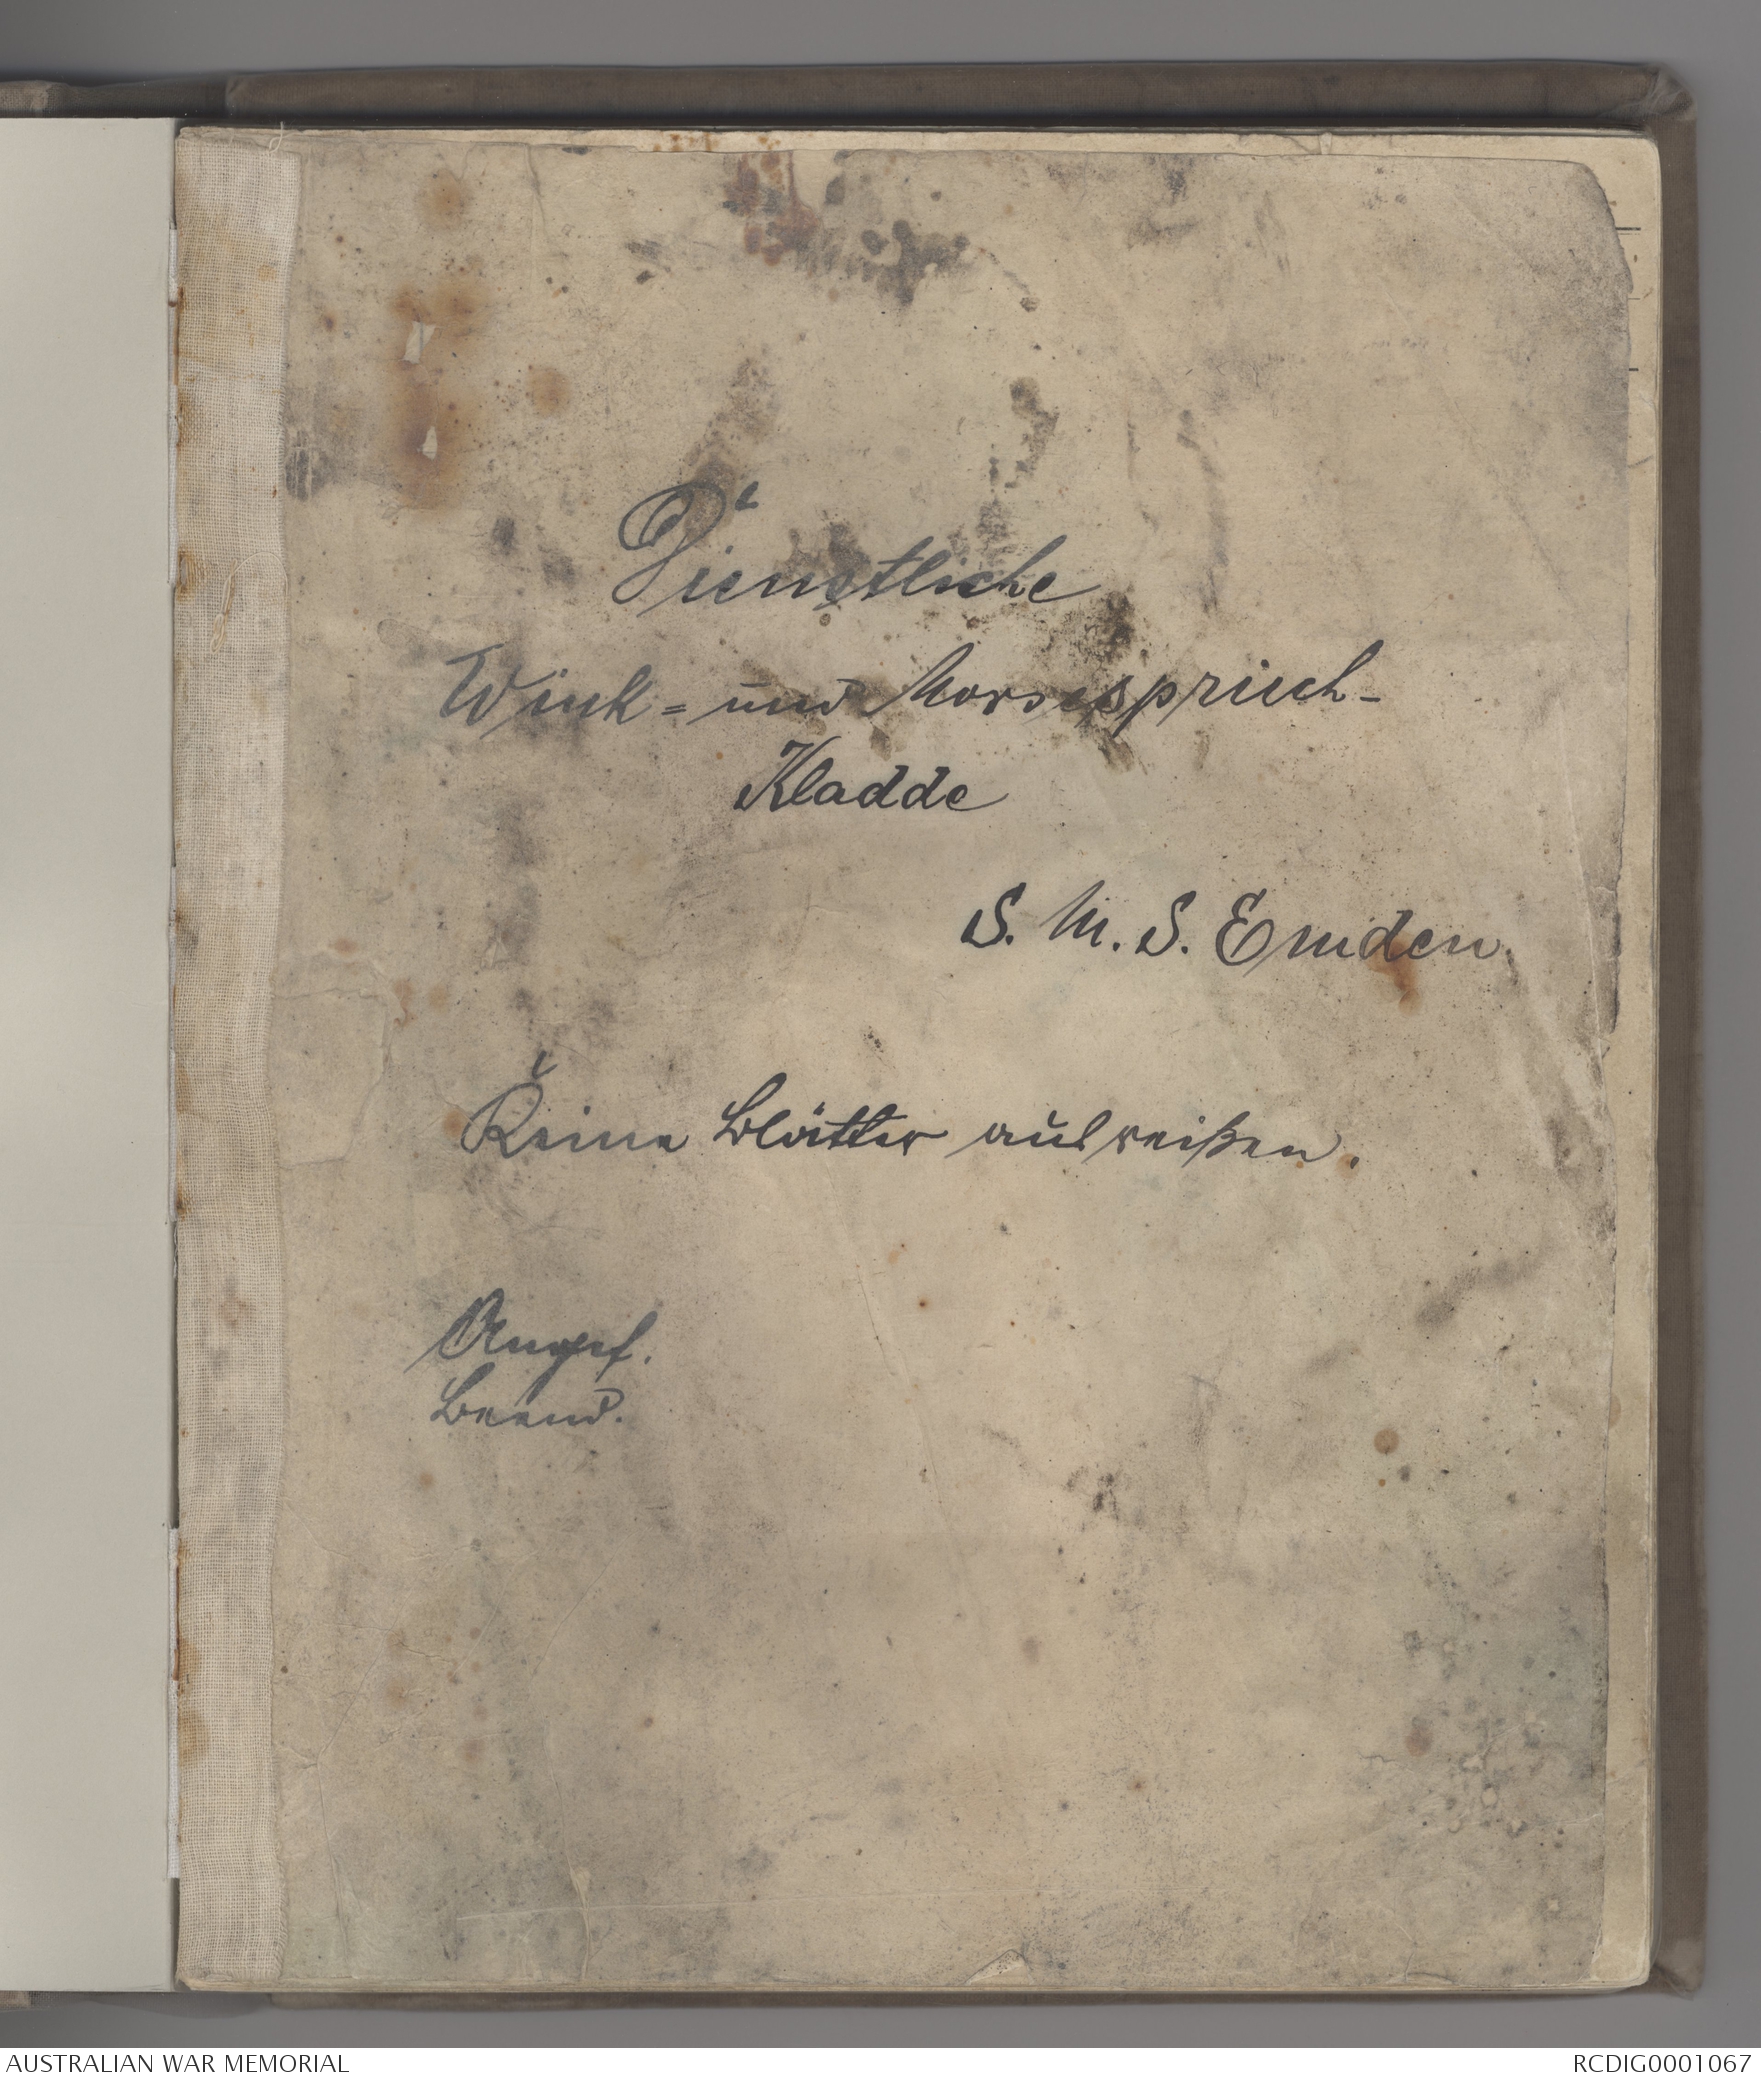 Dienstliche
Wink= und Morsespruch-
Kladde
S. M. S. Emden.
Keine Blätter ausreißen.
Angef.
Beend.
AUSTRALIAN WAR MEMORIAL
RCDIG0001067